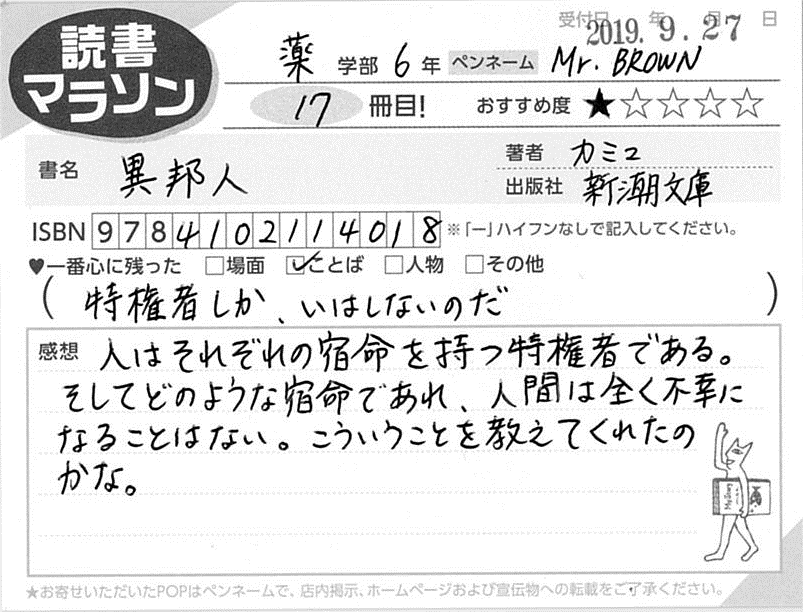 受付日 年 月 日
2019. 9. 27
読書
マラソン
薬 学部 6 年 ペンネーム Mr. BROWN
17 冊目! おすすめ度 ★☆☆☆☆
書名 異邦人
著者 カミュ
出版社 新潮文庫
ISBN 9784102114018 ※「ー」ハイフンなしで記入してください。
♥一番心に残った □場面 ☑ことば □人物 □その他
(特権者しか、いはしないのだ)
感想 人はそれぞれの宿命を持つ特権者である。
そしてどのような宿命であれ、人間は全く不幸に
なることはない。こういうことを教えてくれたの
かな。
★お寄せいただいたPOPはペンネームで、店内掲示、ホームページおよび宣伝物への転載をご了承ください。